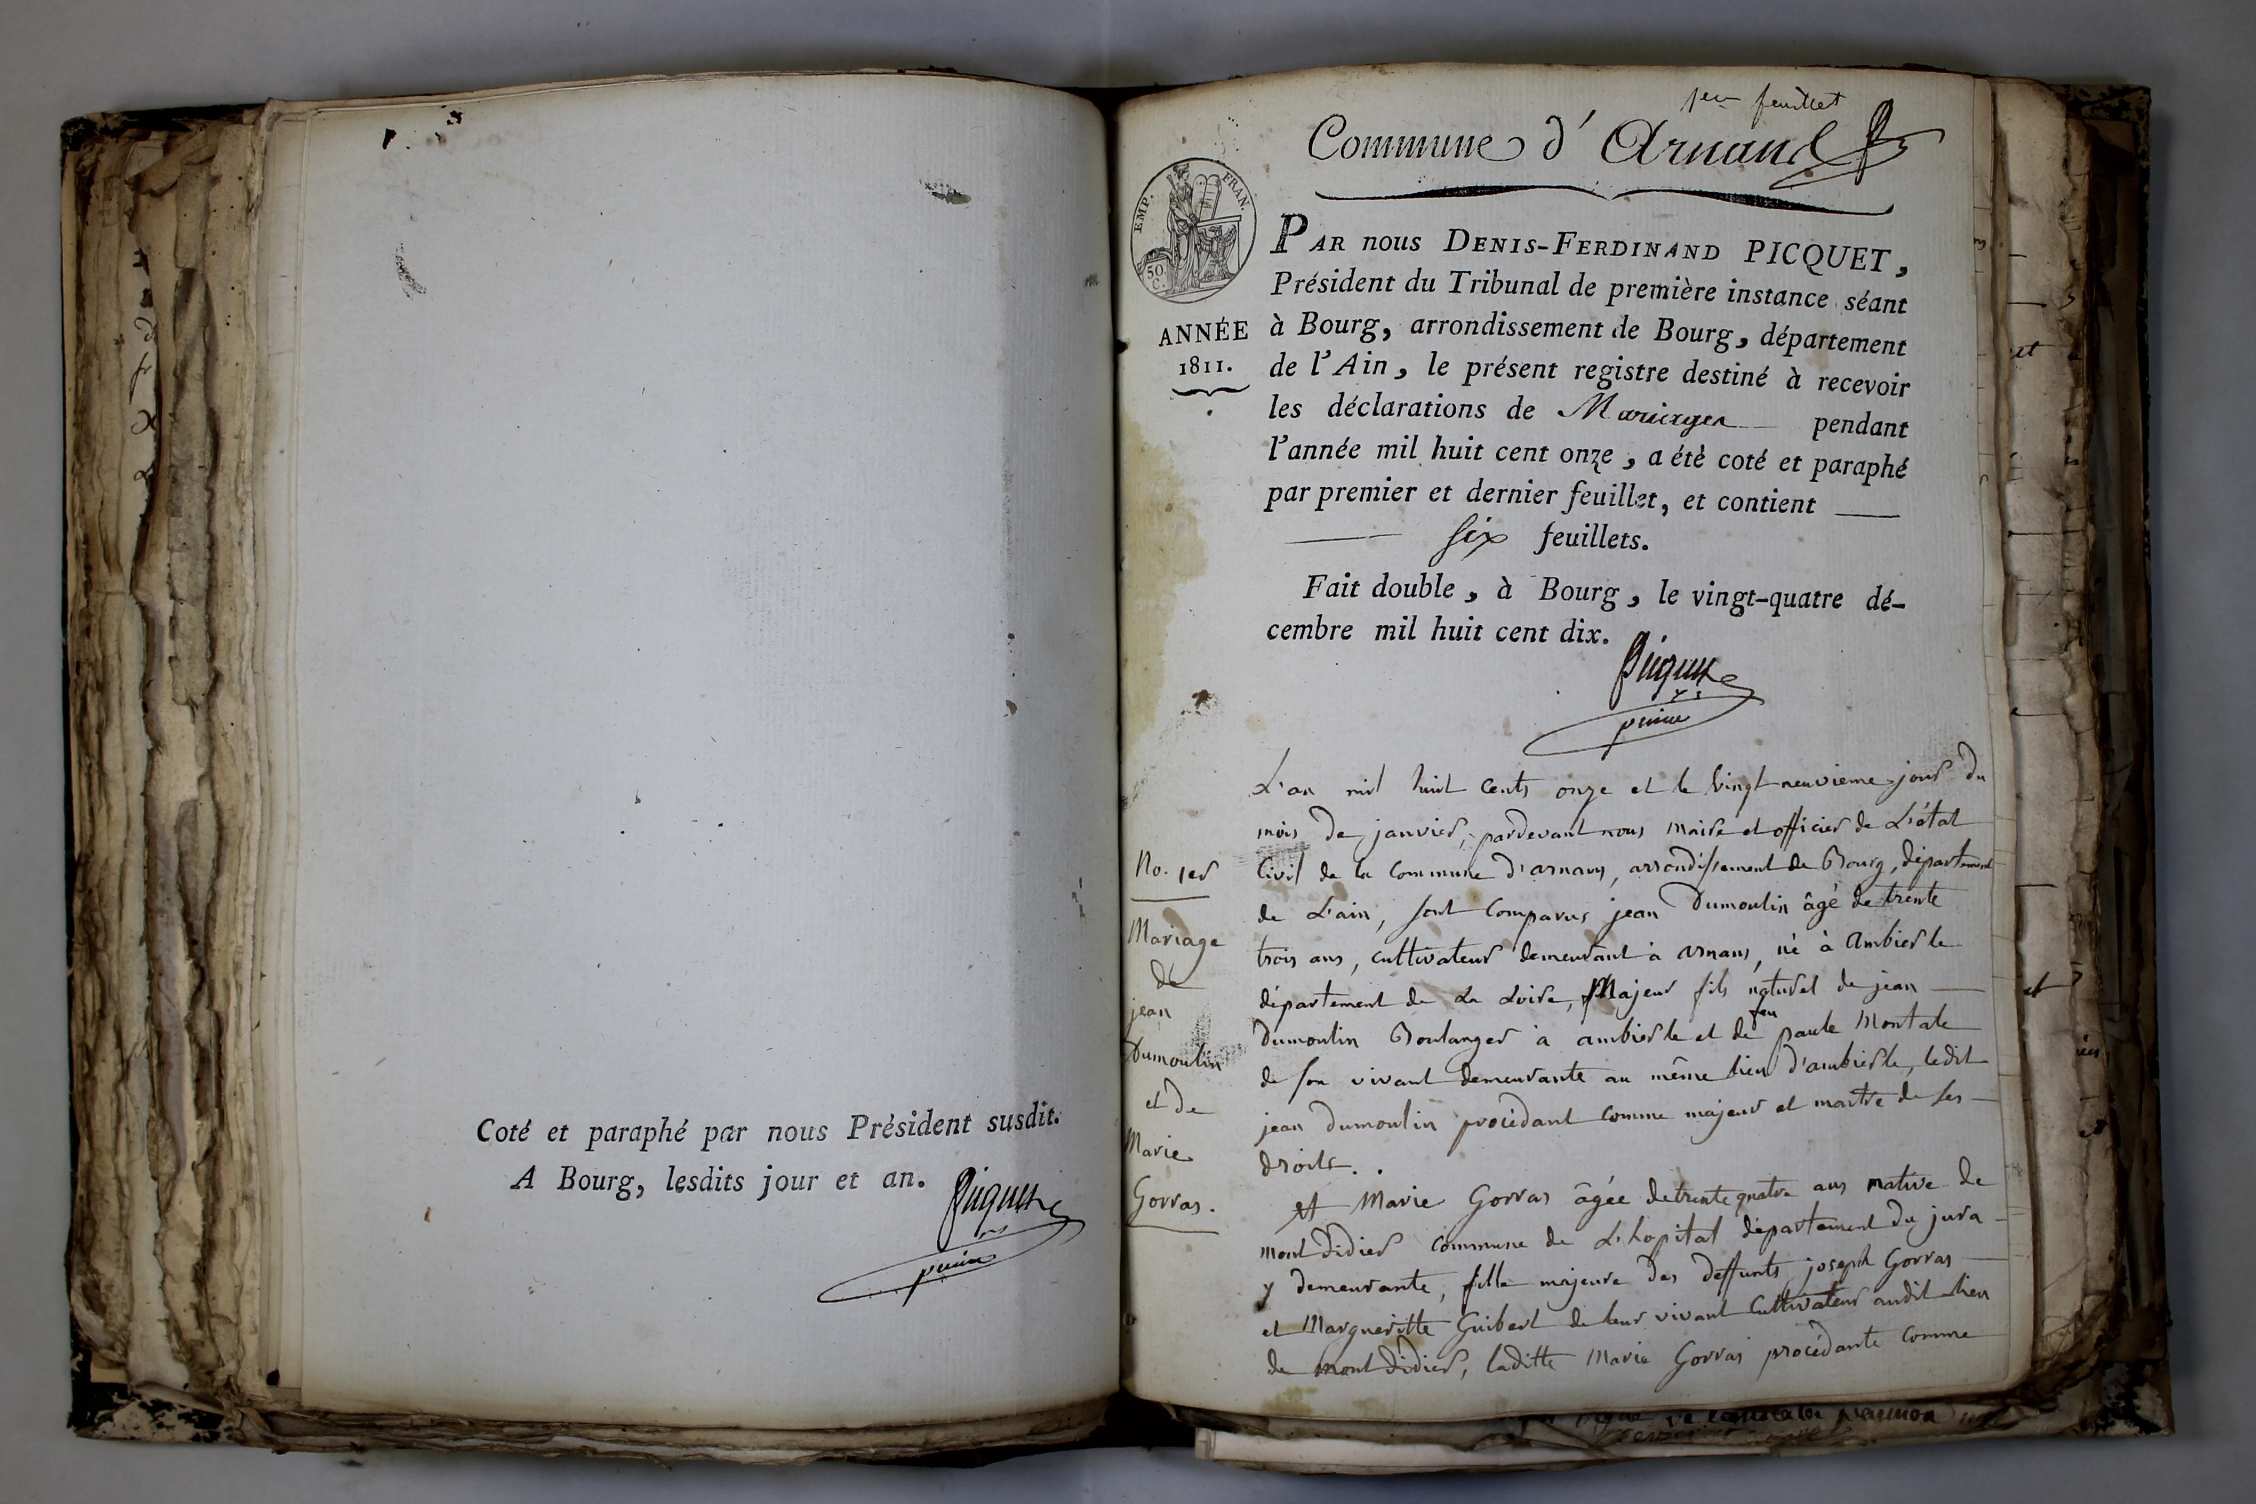 Coté et paraphé par nous Président susdit.
A Bourg, lesdits jour et an.
Picquet
1er feuillet
Commune d'Arnans
EMP. FRAN.
50.
C.
ANNÉE
1811.
PAR nous DENIS-FERDINAND PICQUET,
Président du Tribunal de première instance séant
à Bourg, arrondissement de Bourg, département
de l'Ain, le présent registre destiné à recevoir
les déclarations de Mariages pendant
l'année mil huit cent onze, a été coté et paraphé
par premier et dernier feuillet, et contient
six feuillets.
Fait double, à Bourg, le vingt-quatre dé-
cembre mil huit cent dix.
Picquet
No. 1er
Mariage
de
jean
Dumoulin
et de
Marie
Gorras.
L'an mil huit cents onze et le vingt neuvieme jour du
mois de janvier, pardevant nous Maire et officier de L'état
Civil de la Commune d'arnans, arrondissement de Bourg, département
de L'ain, sont Comparus jean Dumoulin âgé de trente
trois ans, cultivateur demeurant à arnans, né à Ambierle
département de La Loire, Majeur fils naturel de jean
Dumoulin Boulanger à ambierle et de feu paule Montale
de son vivant demeurante au même lieu d'ambierle, ledit
jean Dumoulin procédant comme majeur et maitre de ses
droits.
et Marie Gorras âgée de trente quatre ans native de
Mont Didier Commune de L'hopital département du jura
y demeurante, fille majeure des deffunts joseph Gorras
et Margueritte Guibert de leur vivant Cultivateur audit lieu
de Mont Didier, laditte Marie Gorras procédante comme